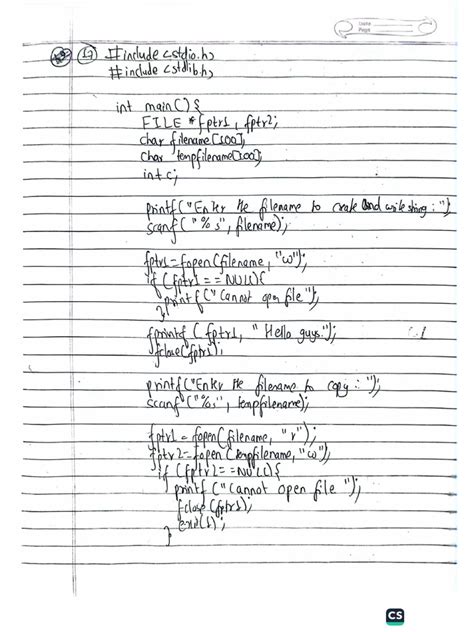 Date
Page
17 #include <stdio.h>
#include <stdlib.h>
int main() {
FILE *fptr1, fptr2;
char filename[100];
char tempfilename[100];
int c;
printf("Enter the filename to create and write string : ");
scanf("%s", filename);
fptr1 = fopen(filename, "w");
if (fptr1 == NULL) {
printf("Cannot open file");
}
fprintf(fptr1, "Hello guys.");
fclose(fptr1);
printf("Enter the filename to copy : ");
scanf("%s", tempfilename);
fptr1 = fopen(filename, "r");
fptr2 = fopen(tempfilename, "w");
if (fptr2 == NULL) {
printf("Cannot open file ");
fclose(fptr1);
exit(1);
}
CS